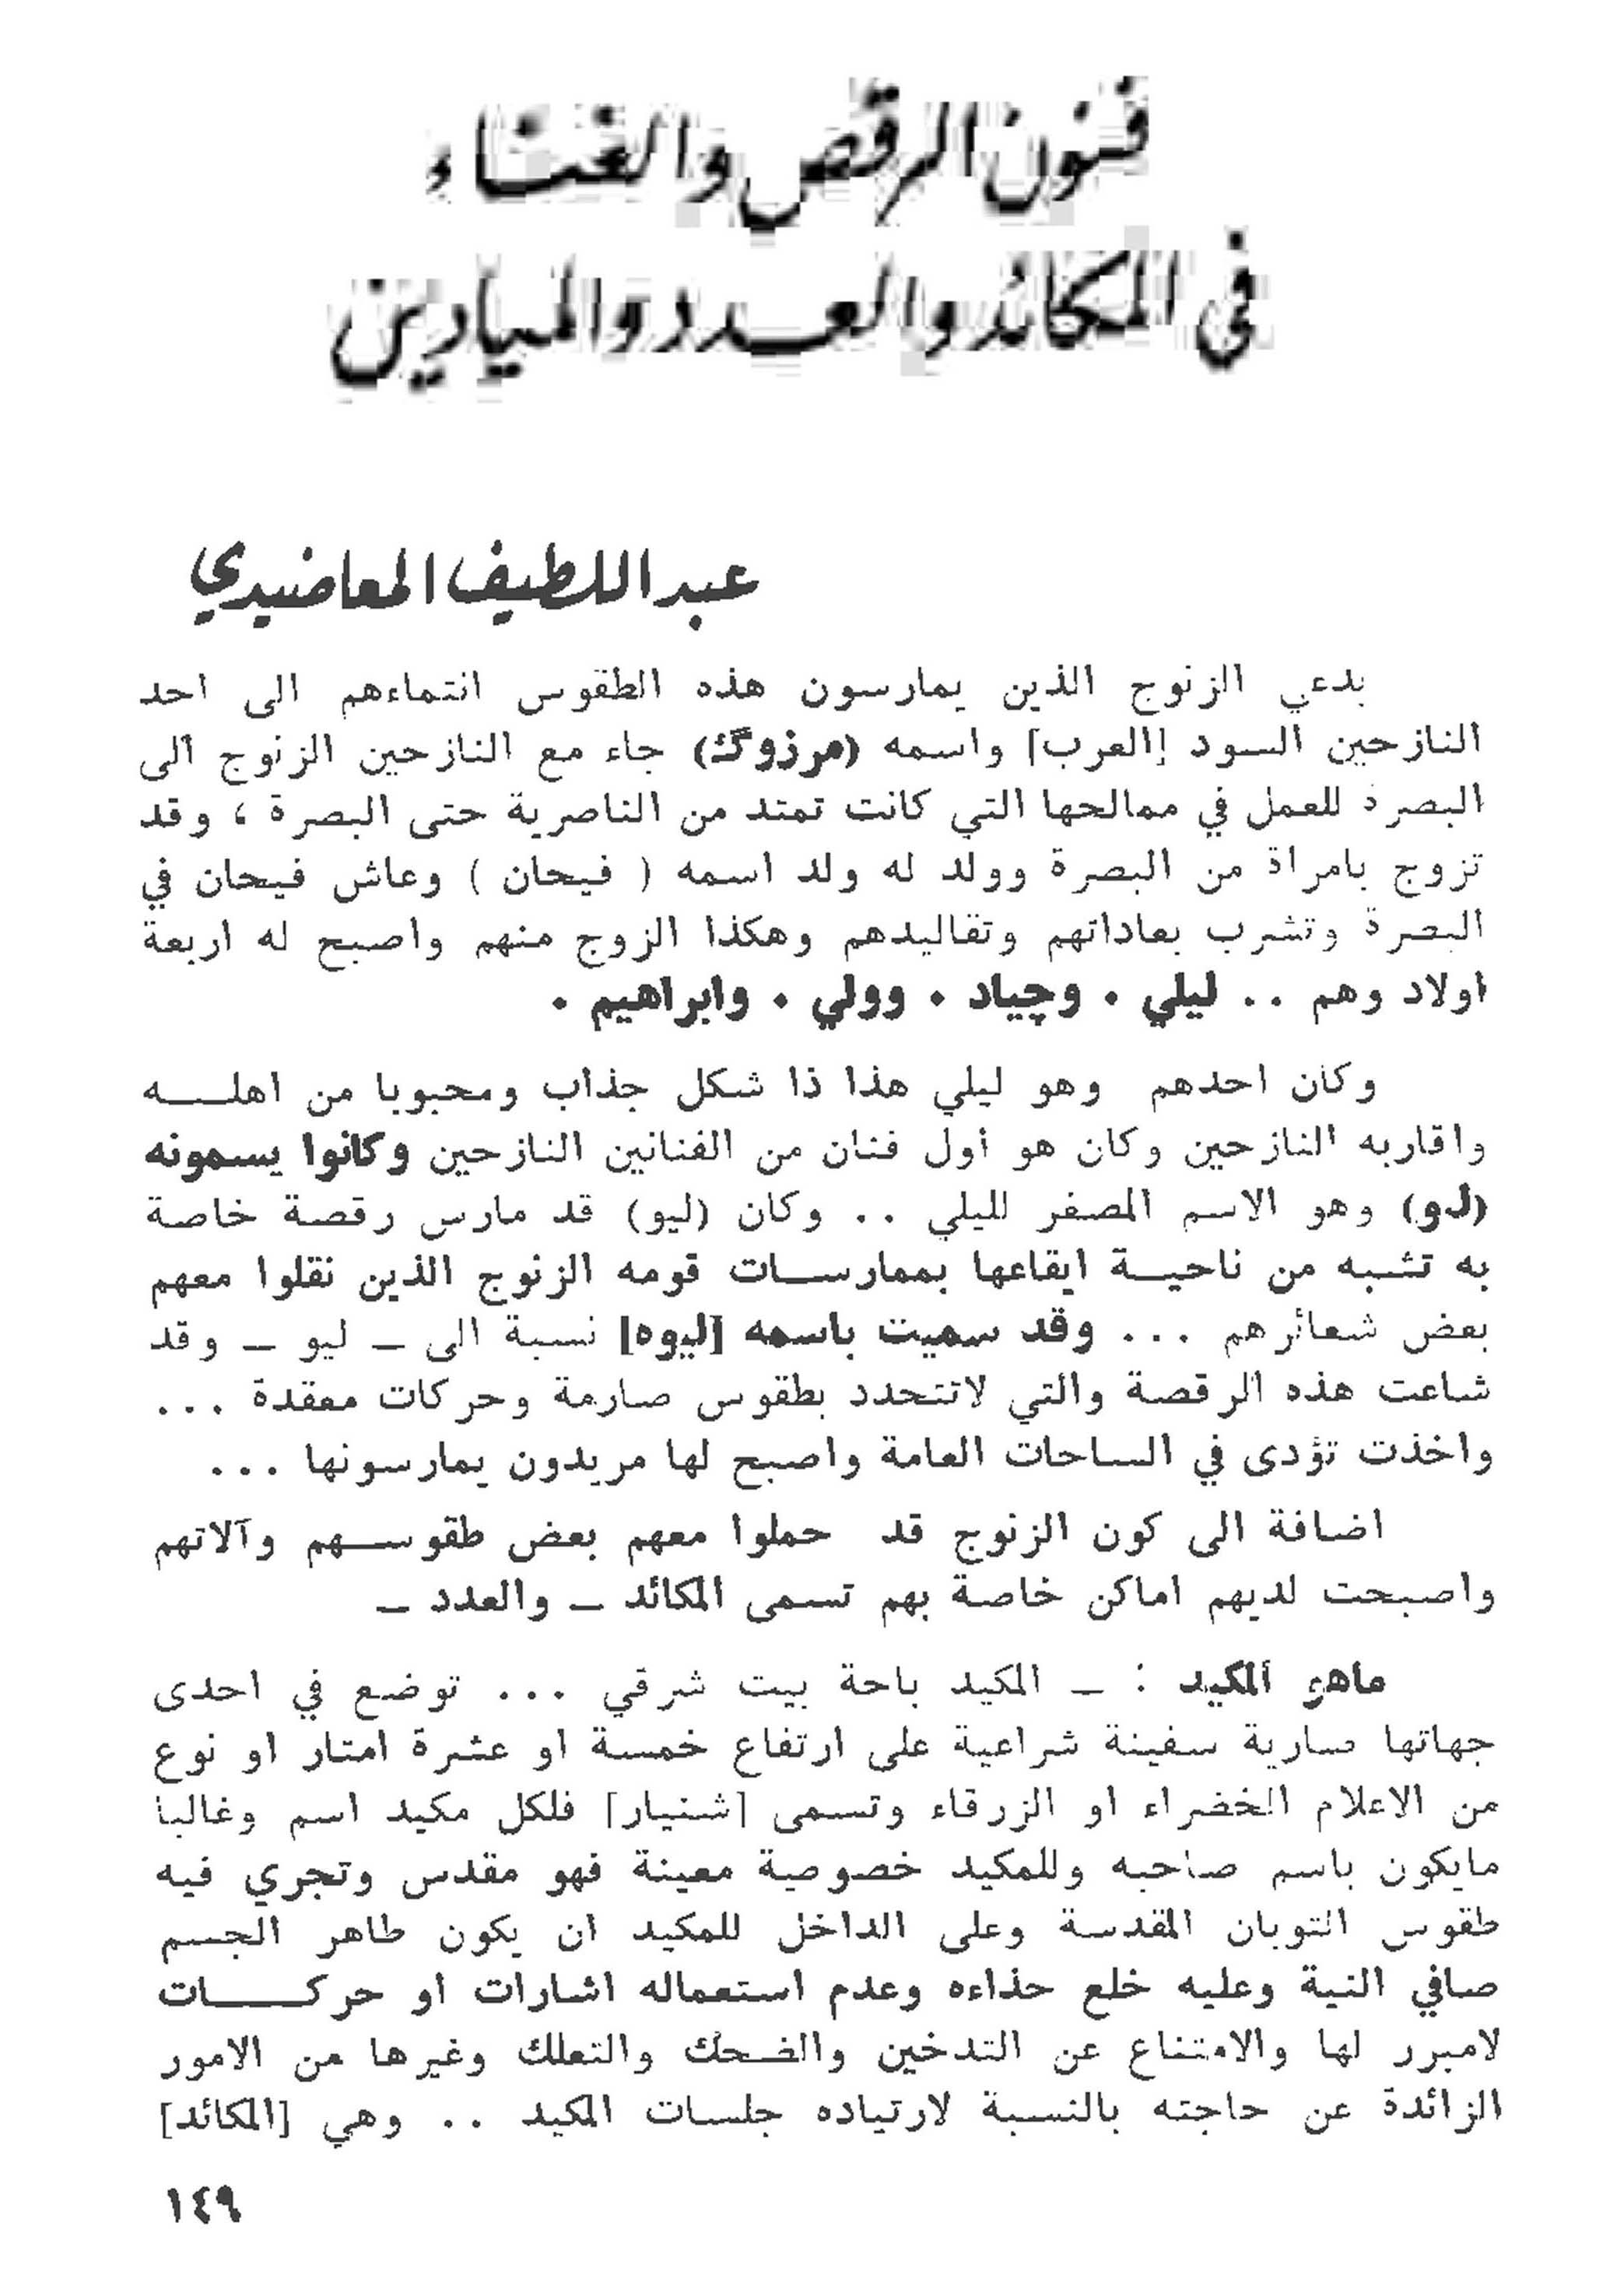 فنون الرقص والغناء
في المكائد والعدد والميادين
عبد اللطيف المعاضيدي
يدعي الزنوج الذين يمارسون هذه الطقوس انتماءهم الى احد
النازحين السود [العرب] واسمه (مرزوگ) جاء مع النازحين الزنوج الى
البصرة للعمل في ممالحها التي كانت تمتد من الناصرية حتى البصرة ، وقد
تزوج بامراة من البصرة وولد له ولد اسمه ( فيحان ) وعاش فيحان في
البصرة وتشرب بعاداتهم وتقاليدهم وهكذا الزوج منهم واصبح له اربعة
اولاد وهم .. ليلي . وچياد . وولي . وابراهيم .
وكان احدهم وهو ليلي هذا ذا شكل جذاب ومحبوبا من اهله
واقاربه النازحين وكان هو أول فنان من الفنانين النازحين وكانوا يسمونه
(لو) وهو الاسم المصغر لليلي .. وكان (ليو) قد مارس رقصة خاصة
به تشبه من ناحية ايقاعها بممارسات قومه الزنوج الذين نقلوا معهم
بعض شعائرهم ... وقد سميت باسمه [ليوه] نسبة الى – ليو – وقد
شاعت هذه الرقصة والتي لاتتحدد بطقوس صارمة وحركات معقدة ...
واخذت تؤدى في الساحات العامة واصبح لها مريدون يمارسونها ...
اضافة الى كون الزنوج قد حملوا معهم بعض طقوسهم وآلاتهم
واصبحت لديهم اماكن خاصة بهم تسمى المكائد – والعدد –
ماهو المكيد : – المكيد باحة بيت شرقي ... توضع في احدى
جهاتها صارية سفينة شراعية على ارتفاع خمسة او عشرة امتار او نوع
من الاعلام الخضراء او الزرقاء وتسمى [شنيار] فلكل مكيد اسم وغالبا
مايكون باسم صاحبه وللمكيد خصوصية معينة فهو مقدس وتجري فيه
طقوس التوبان المقدسة وعلى الداخل للمكيد ان يكون طاهر الجسم
صافي النية وعليه خلع حذاءه وعدم استعماله اشارات او حركات
لامبرر لها والامتناع عن التدخين والضحك والتعلك وغيرها من الامور
الزائدة عن حاجته بالنسبة لارتياده جلسات المكيد .. وهي [المكائد]
١٤٩